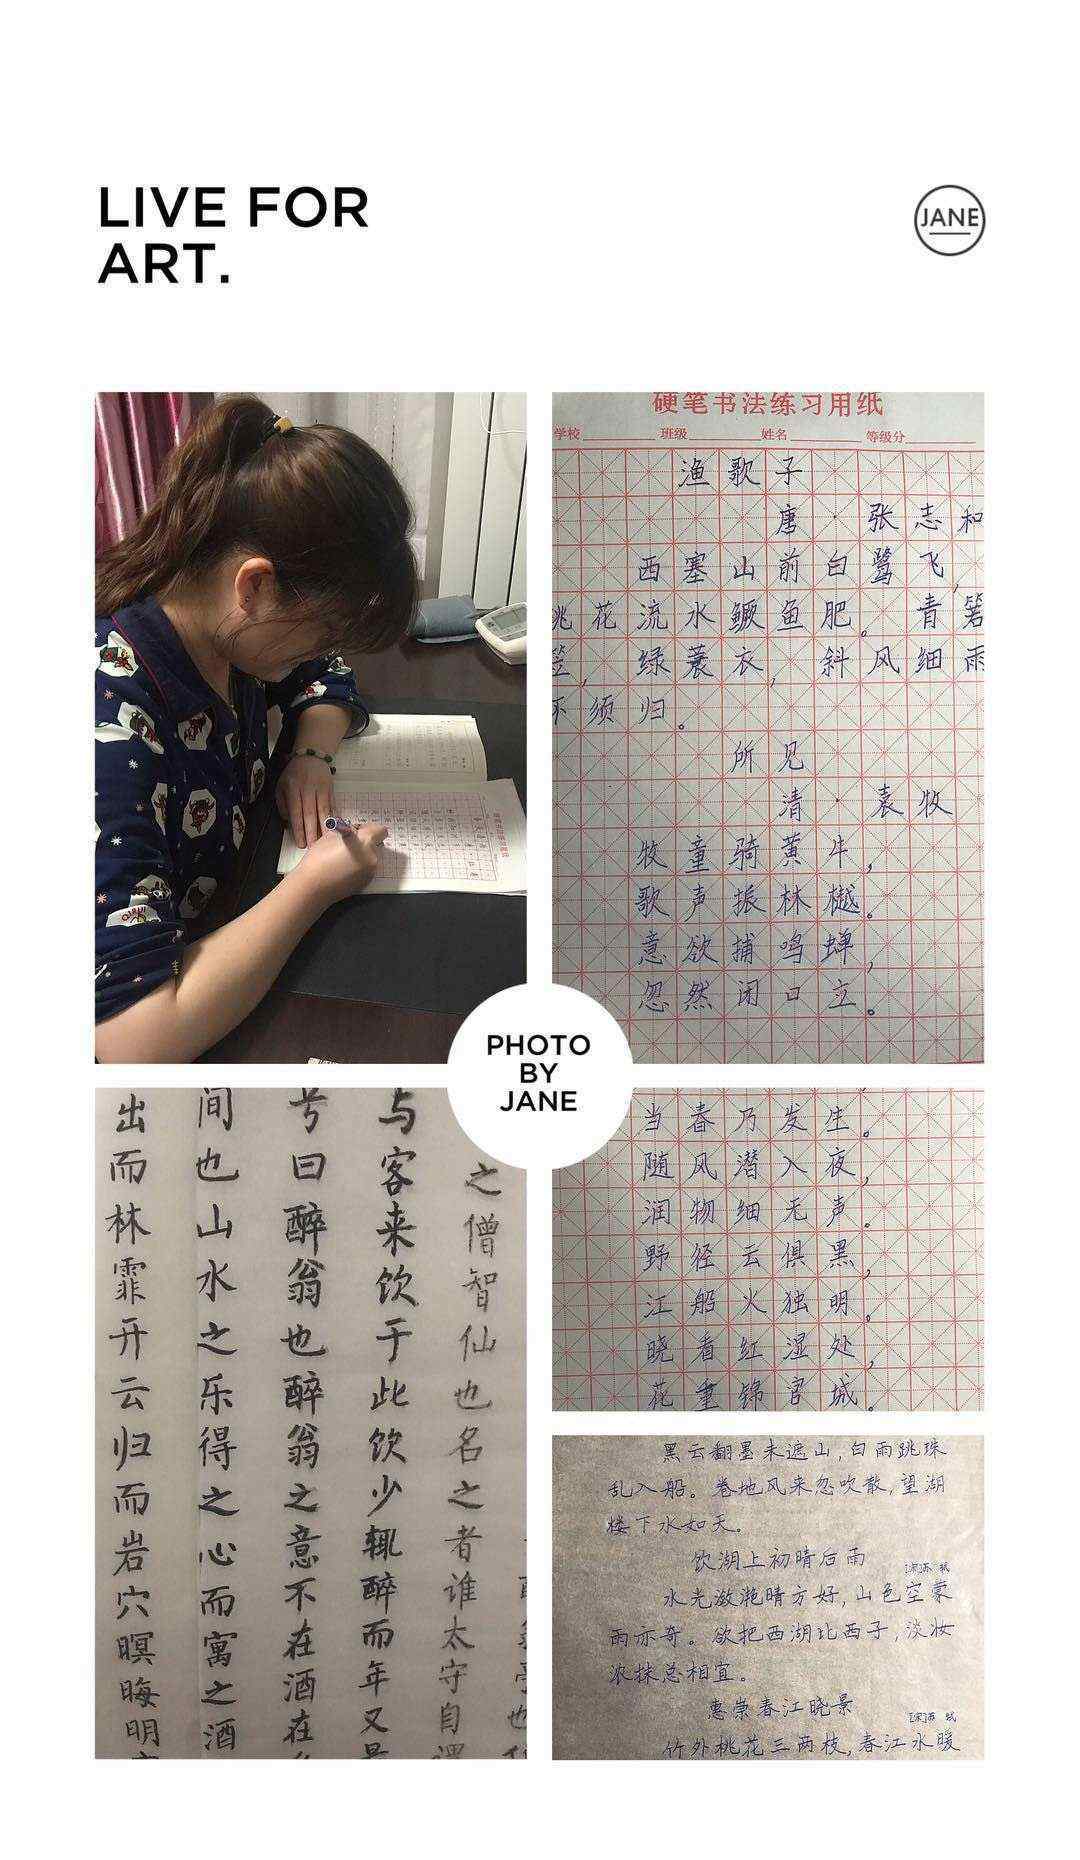 LIVE FOR
ART.
JANE
硬笔书法练习用纸
学校 班级 姓名 等级分
渔歌子
唐·张志和
西塞山前白鹭飞,
桃花流水鳜鱼肥。青箬
笠,绿蓑衣,斜风细雨
不须归。
所见
清·袁牧
牧童骑黄牛,
歌声振林樾。
意欲捕鸣蝉,
忽然闭口立。
PHOTO
BY
JANE
之僧智仙也名之者谁太守自谓
与客来饮于此饮少辄醉而年又最
号曰醉翁也醉翁之意不在酒在
间也山水之乐得之心而寓之酒
出而林霏开云归而岩穴暝晦明
当春乃发生。
随风潜入夜,
润物细无声。
野径云俱黑,
江船火独明。
晓看红湿处,
花重锦官城。
黑云翻墨未遮山,白雨跳珠
乱入船。卷地风来忽吹散,望湖
楼下水如天。
饮湖上初晴后雨
[宋]苏轼
水光潋滟晴方好,山色空蒙
雨亦奇。欲把西湖比西子,淡妆
浓抹总相宜。
惠崇春江晓景
[宋]苏轼
竹外桃花三两枝,春江水暖